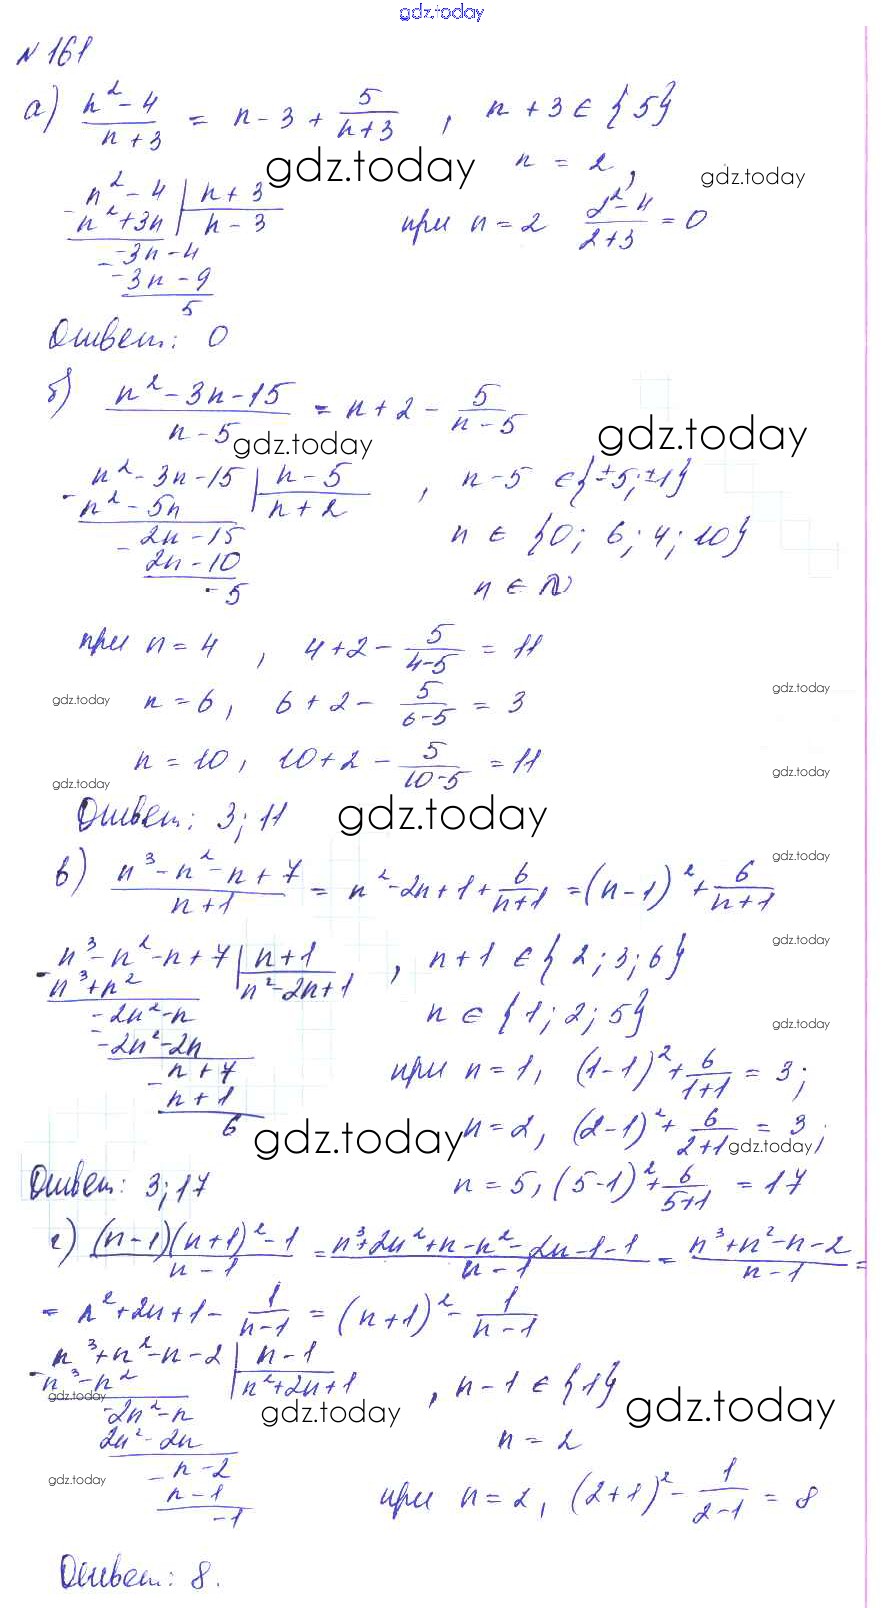 gdz.today
№ 161
а) (n² - 4)/(n + 3) = n - 3 + 5/(n+3) , n + 3 ∈ {5}
gdz.today n = 2, gdz.today
- n² - 4 | n + 3
n² + 3n | n - 3 при n = 2 (2² - 4)/(2+3) = 0
- -3n - 4
-3n - 9
5
Ответ: 0
б) (n² - 3n - 15)/(n - 5) = n + 2 - 5/(n - 5)
gdz.today gdz.today
- n² - 3n - 15 | n - 5 , n - 5 ∈ {±5; ±1}
n² - 5n | n + 2
- 2n - 15 n ∈ {0; 6; 4; 10}
2n - 10
-5 n ∈ N
при n = 4 , 4 + 2 - 5/(4-5) = 11
gdz.today n = 6, 6 + 2 - 5/(6-5) = 3 gdz.today
gdz.today n = 10, 10 + 2 - 5/(10-5) = 11 gdz.today
Ответ: 3; 11 gdz.today
в) (n³ - n² - n + 7)/(n + 1) = n² - 2n + 1 + 6/(n+1) = (n - 1)² + 6/(n+1) gdz.today
- n³ - n² - n + 7 | n + 1 , n + 1 ∈ {2; 3; 6} gdz.today
n³ + n² | n² - 2n + 1
- -2n² - n n ∈ {1; 2; 5} gdz.today
-2n² - 2n
- n + 7 при n = 1, (1 - 1)² + 6/(1+1) = 3;
n + 1
6 gdz.today n = 2, (2 - 1)² + 6/(2+1) = 3; gdz.today
Ответ: 3; 17 n = 5, (5 - 1)² + 6/(5+1) = 17
г) ((n - 1)(n + 1)² - 1)/(n - 1) = (n³ + 2n² + n - n² - 2n - 1 - 1)/(n - 1) = (n³ + n² - n - 2)/(n - 1) =
= n² + 2n + 1 - 1/(n-1) = (n + 1)² - 1/(n - 1)
- n³ + n² - n - 2 | n - 1
n³ - n² | n² + 2n + 1 , n - 1 ∈ {1}
gdz.today - 2n² - n gdz.today gdz.today
2n² - 2n n = 2
gdz.today - n - 2
n - 1 при n = 2, (2 + 1)² - 1/(2-1) = 8
-1
Ответ: 8.